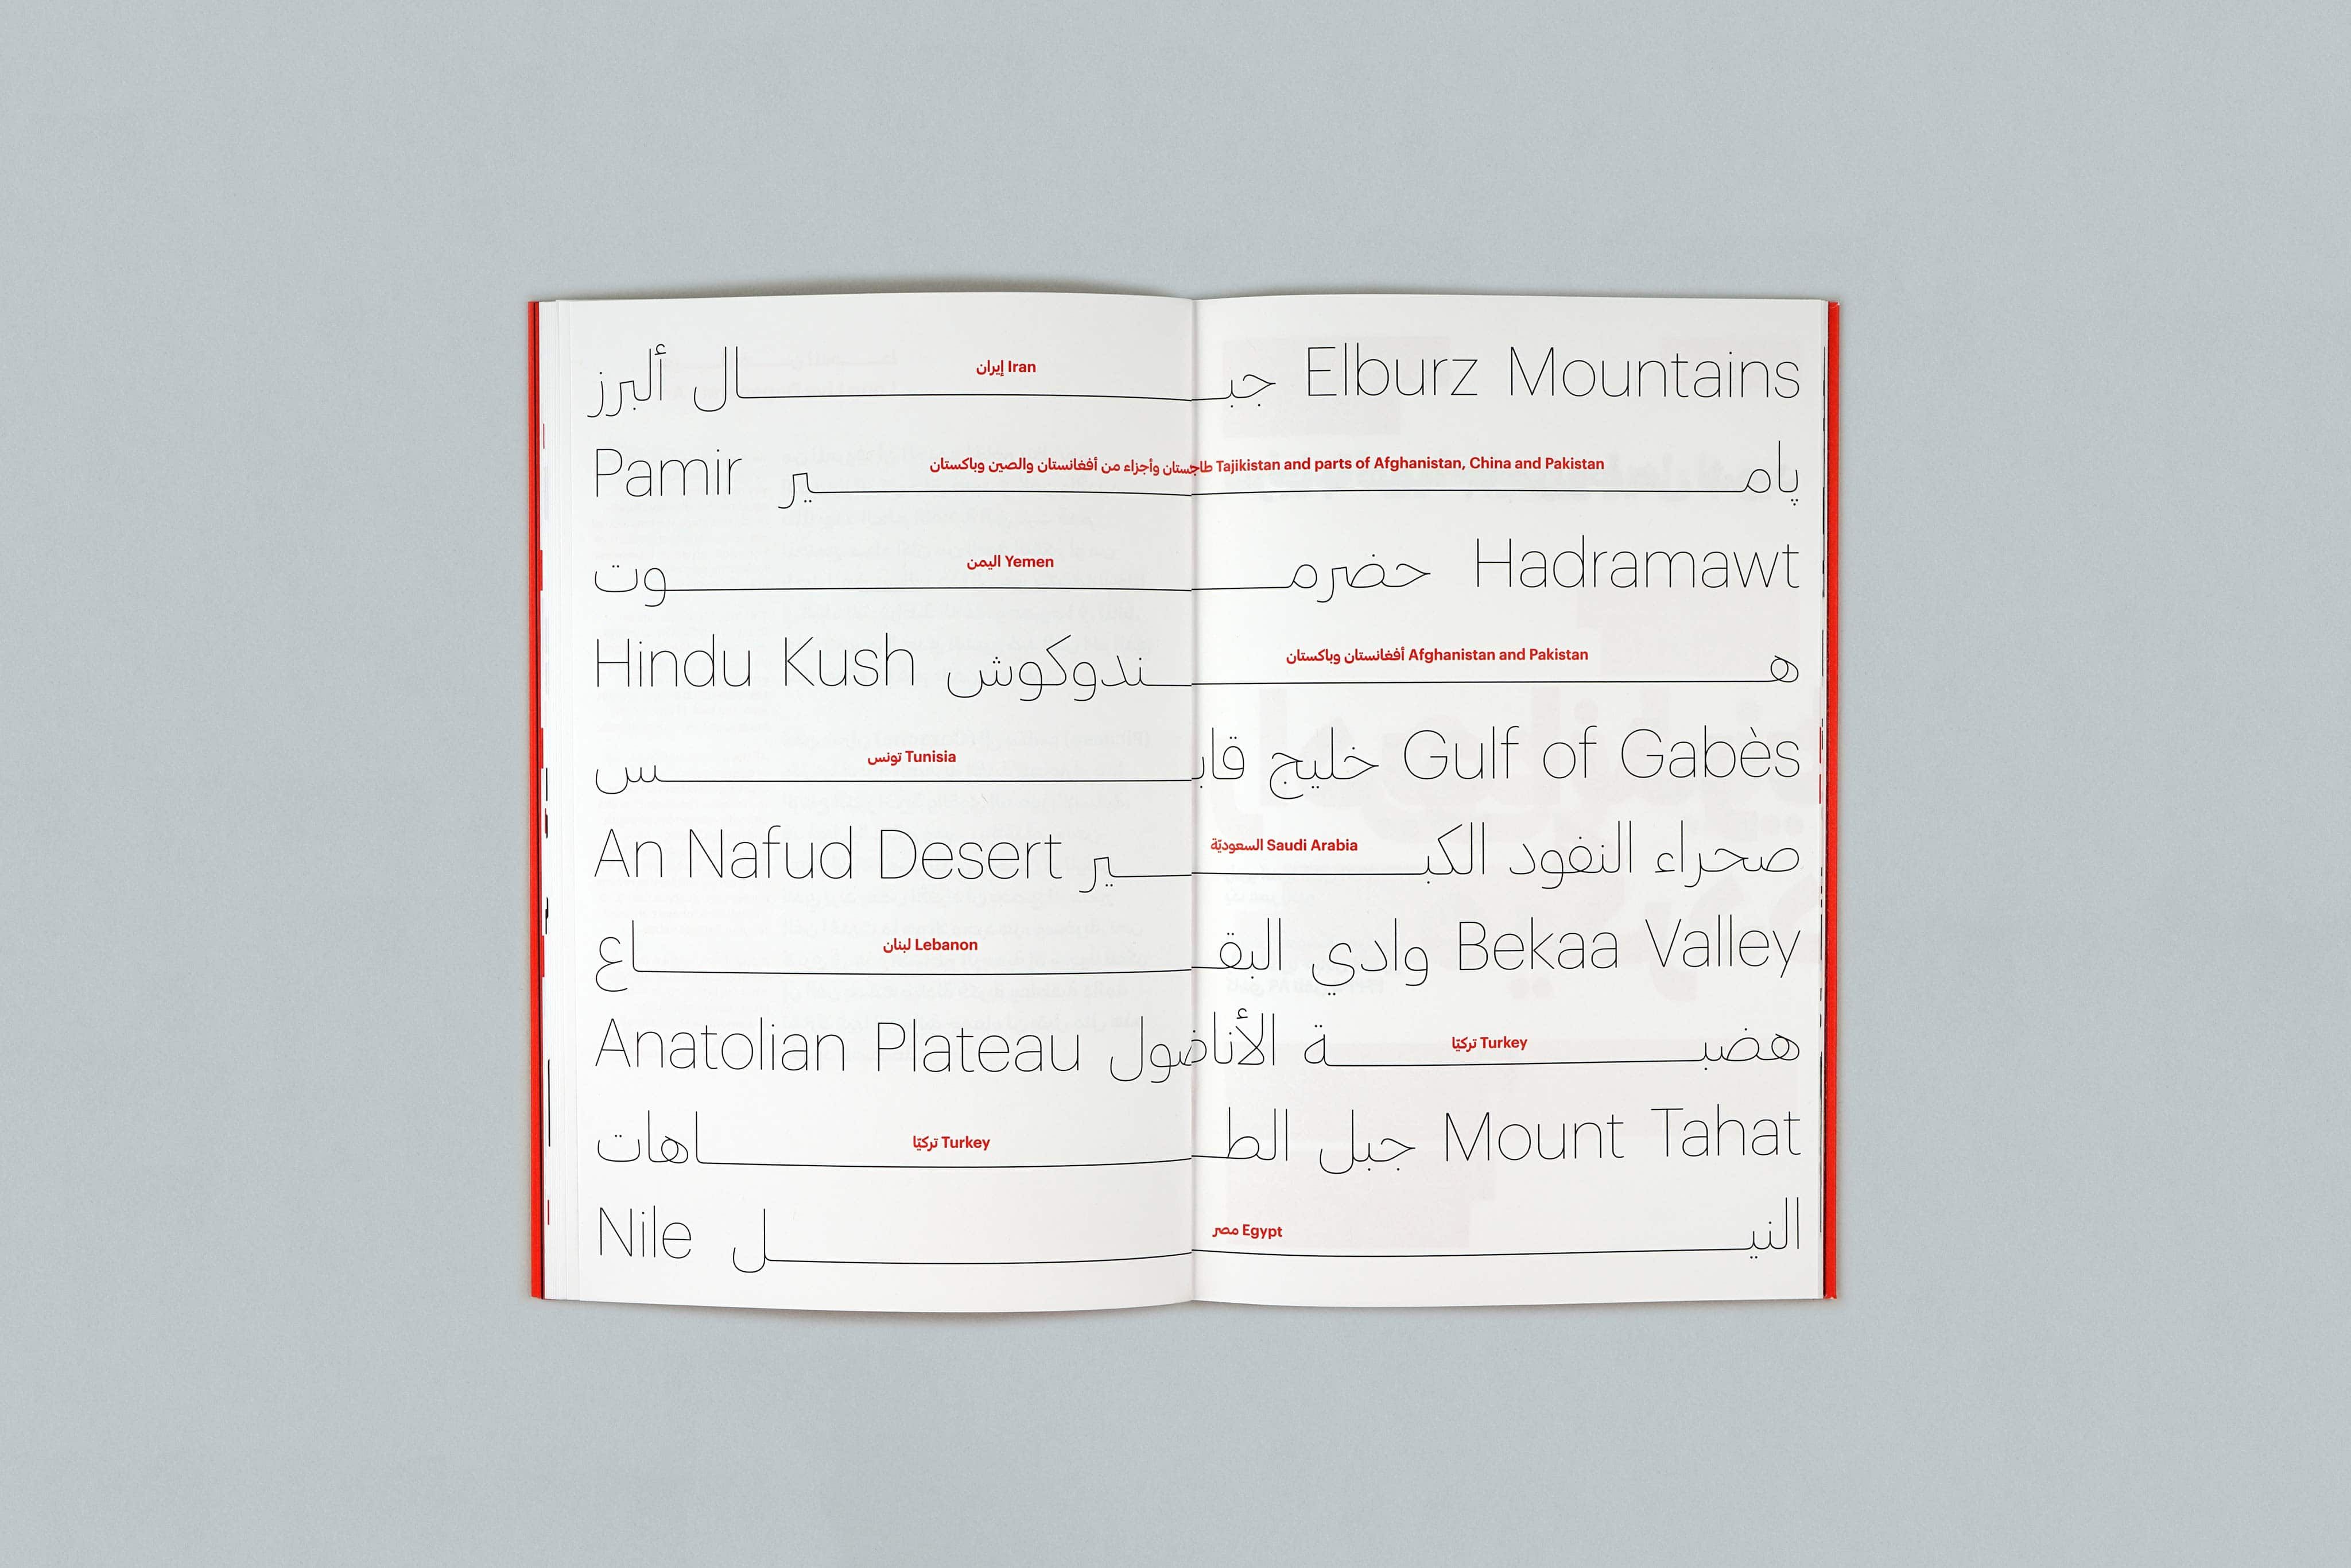 Elburz Mountains جبال ألبرز
إيران Iran
پامير Pamir
طاجستان وأجزاء من أفغانستان والصين وباكستان Tajikistan and parts of Afghanistan, China and Pakistan
Hadramawt حضرموت
اليمن Yemen
هندوكوش Hindu Kush
أفغانستان وباكستان Afghanistan and Pakistan
Gulf of Gabès خليج قابس
تونس Tunisia
صحراء النفود الكبير An Nafud Desert
السعوديّة Saudi Arabia
Bekaa Valley وادي البقاع
لبنان Lebanon
هضبة الأناضول Anatolian Plateau
تركيّا Turkey
Mount Tahat جبل الطاهات
تركيّا Turkey
النيل Nile
مصر Egypt